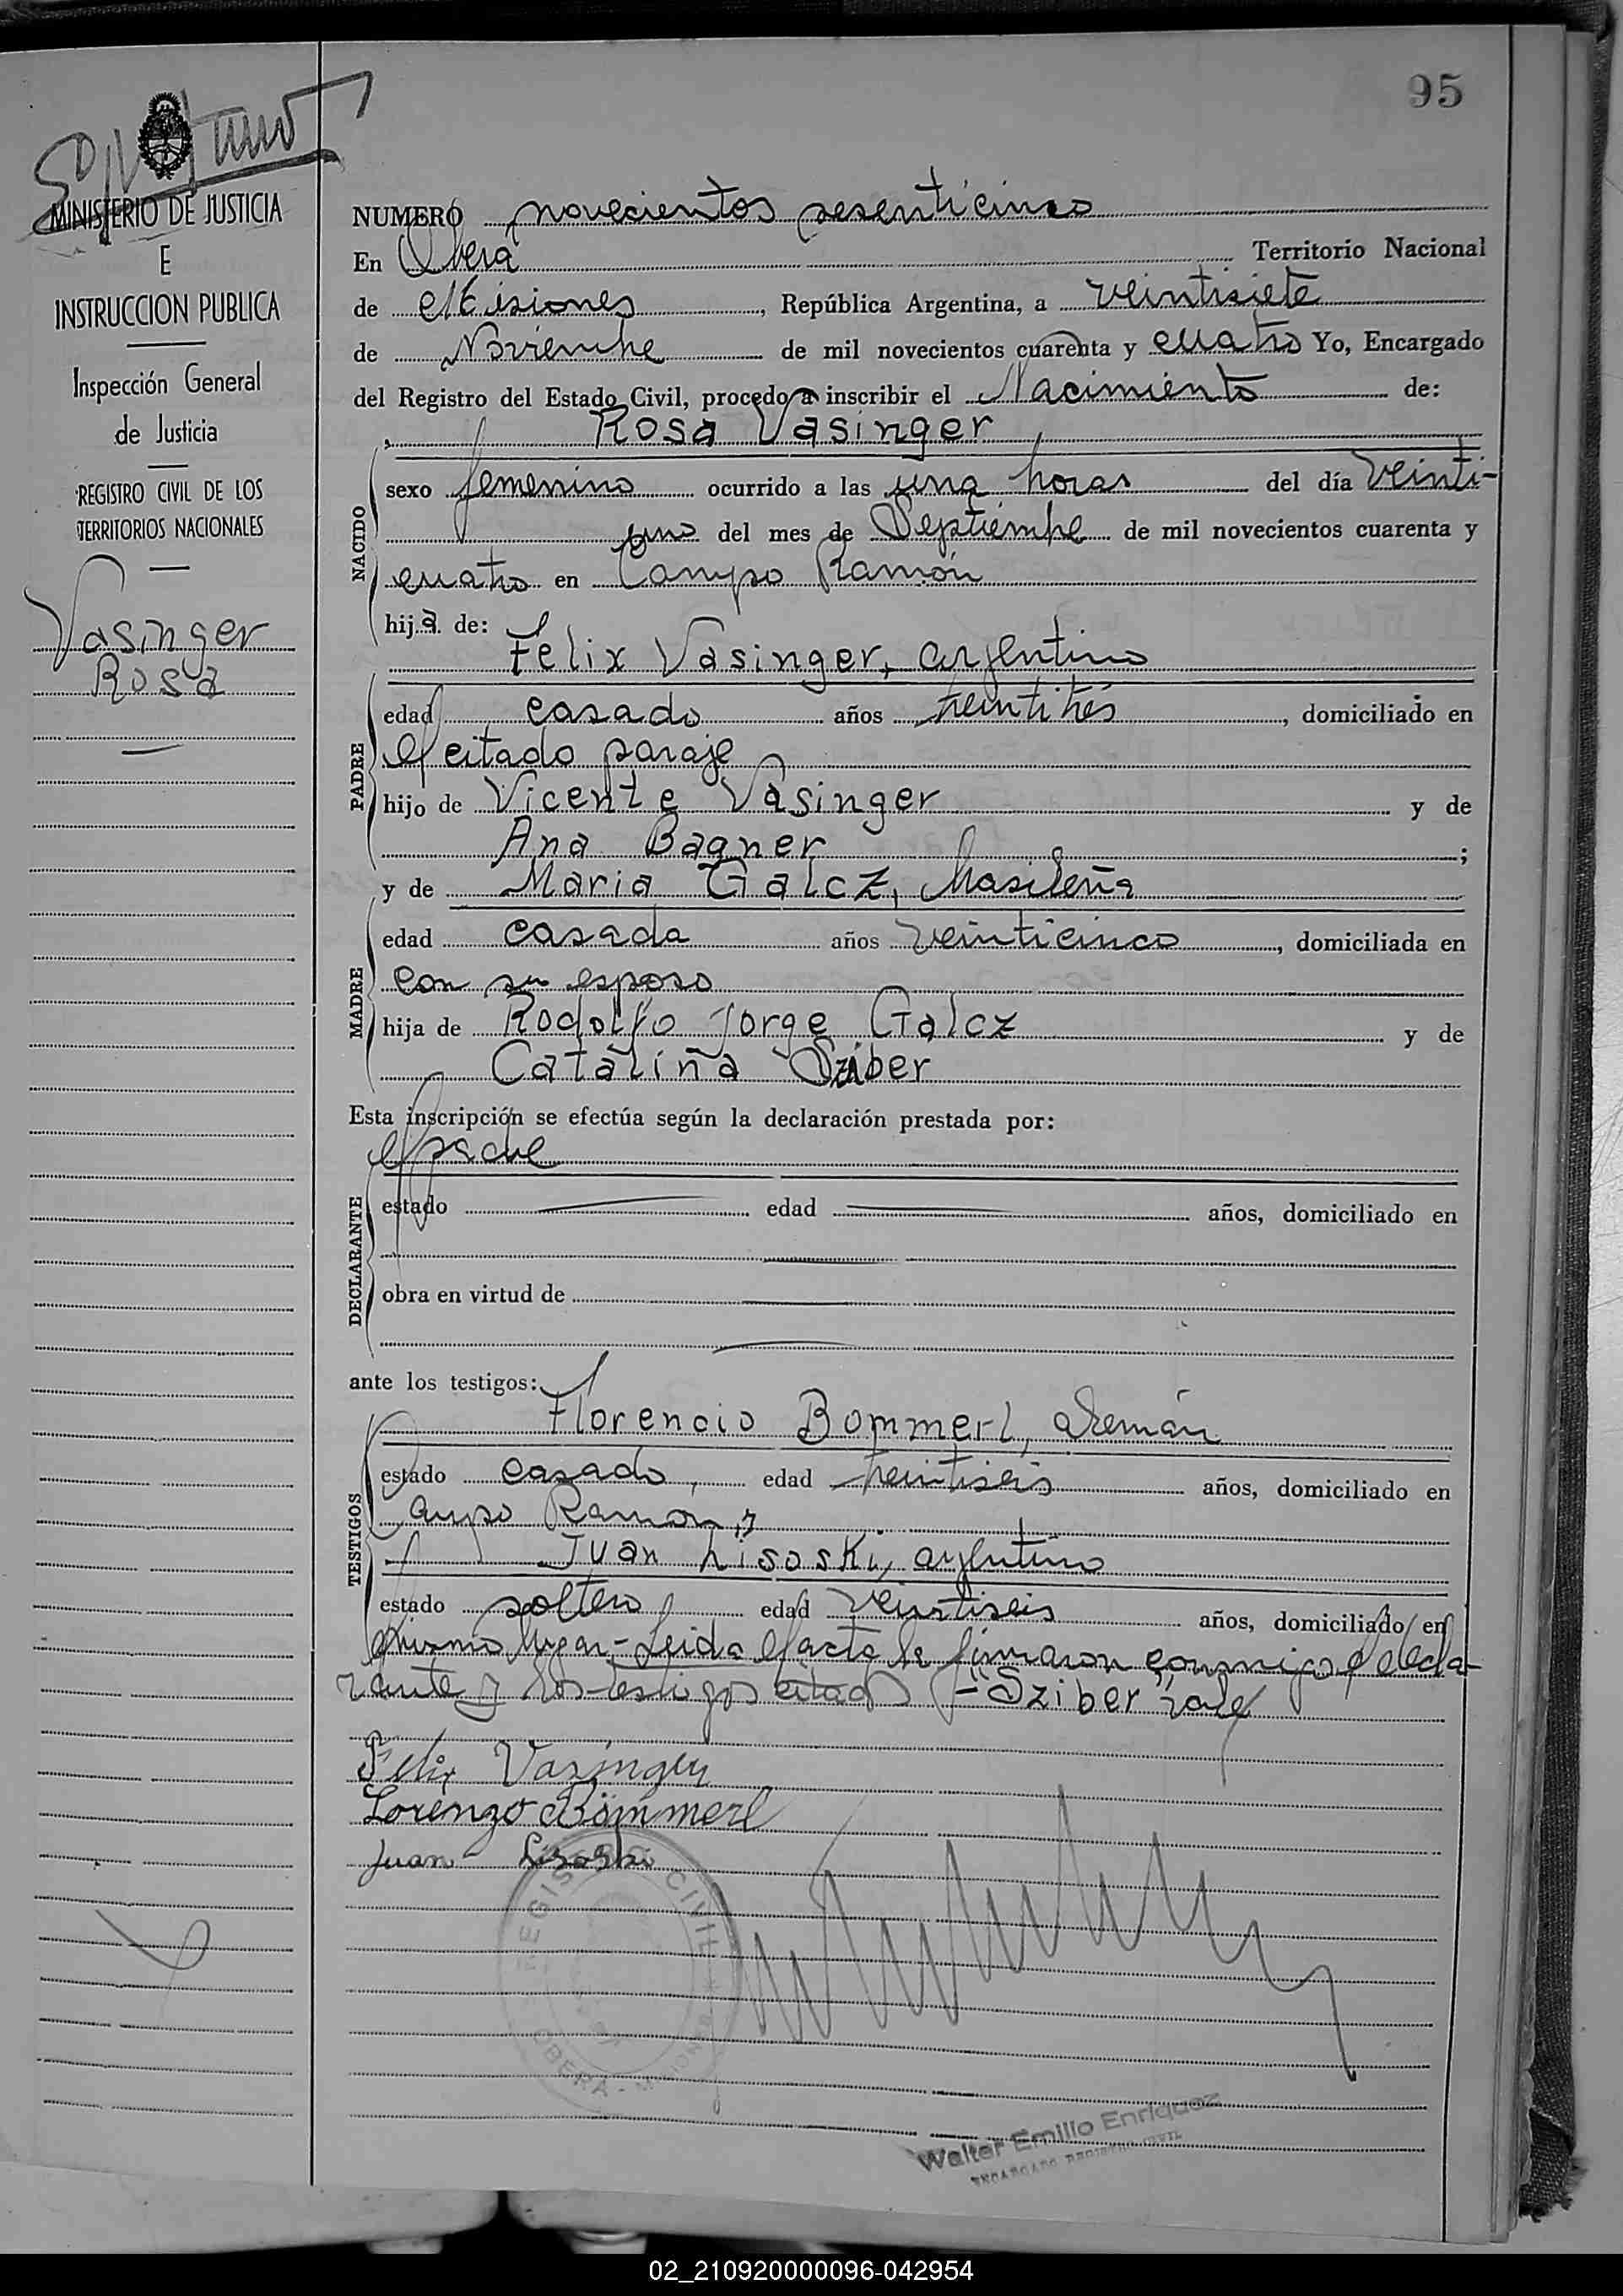 95
MINISTERIO DE JUSTICIA
E
INSTRUCCION PUBLICA
Inspección General
de Justicia
REGISTRO CIVIL DE LOS
TERRITORIOS NACIONALES
Vasinger
Rosa
NUMERO novecientos sesenticinco
En Oberá Territorio Nacional
de Misiones, República Argentina, a veintisiete
de Noviembre de mil novecientos cuarenta y cuatro Yo, Encargado
del Registro del Estado Civil, procedo a inscribir el Nacimiento de:
Rosa Vasinger
NACIDO
sexo femenino ocurrido a las una horas del día veinti-
uno del mes de Septiembre de mil novecientos cuarenta y
cuatro en Campo Ramón
hija de:
Felix Vasinger, argentino
PADRE
edad casado años treintitrés, domiciliado en
el citado paraje
hijo de Vicente Vasinger y de
Ana Bagner;
y de Maria Galcz, brasileña
MADRE
edad casada años veinticinco, domiciliada en
con su esposo
hija de Rodolfo Jorge Galcz y de
Catalina Sziber
Esta inscripción se efectúa según la declaración prestada por:
el padre
DECLARANTE
estado edad años, domiciliado en
obra en virtud de
ante los testigos:
Florencio Bommerl, alemán
TESTIGOS
estado casado, edad treintiseis años, domiciliado en
Campo Ramón y
Juan Lisoski, argentino
estado soltero edad veintiseis años, domiciliado en
mismo lugar - Leida el acta la firmaron conmigo el decla-
rante y los testigos citados - "Sziber" vale
Felix Vasinger
Lorenzo Bömmerl
Juan Lisoski
REGISTRO CIVIL
OBERÁ - MISIONES
Walter Emilio Enriquez
ENCARGADO REGISTRO CIVIL
02_210920000096-042954